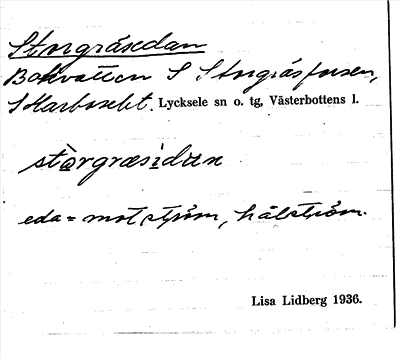 Storgräsedan
Bakvatten S Storgräsforsen,
S Karbäcket. Lycksele sn o. tg, Västerbottens l.
stòrgræsidan
eda = motström, hålström.
Lisa Lidberg 1936.